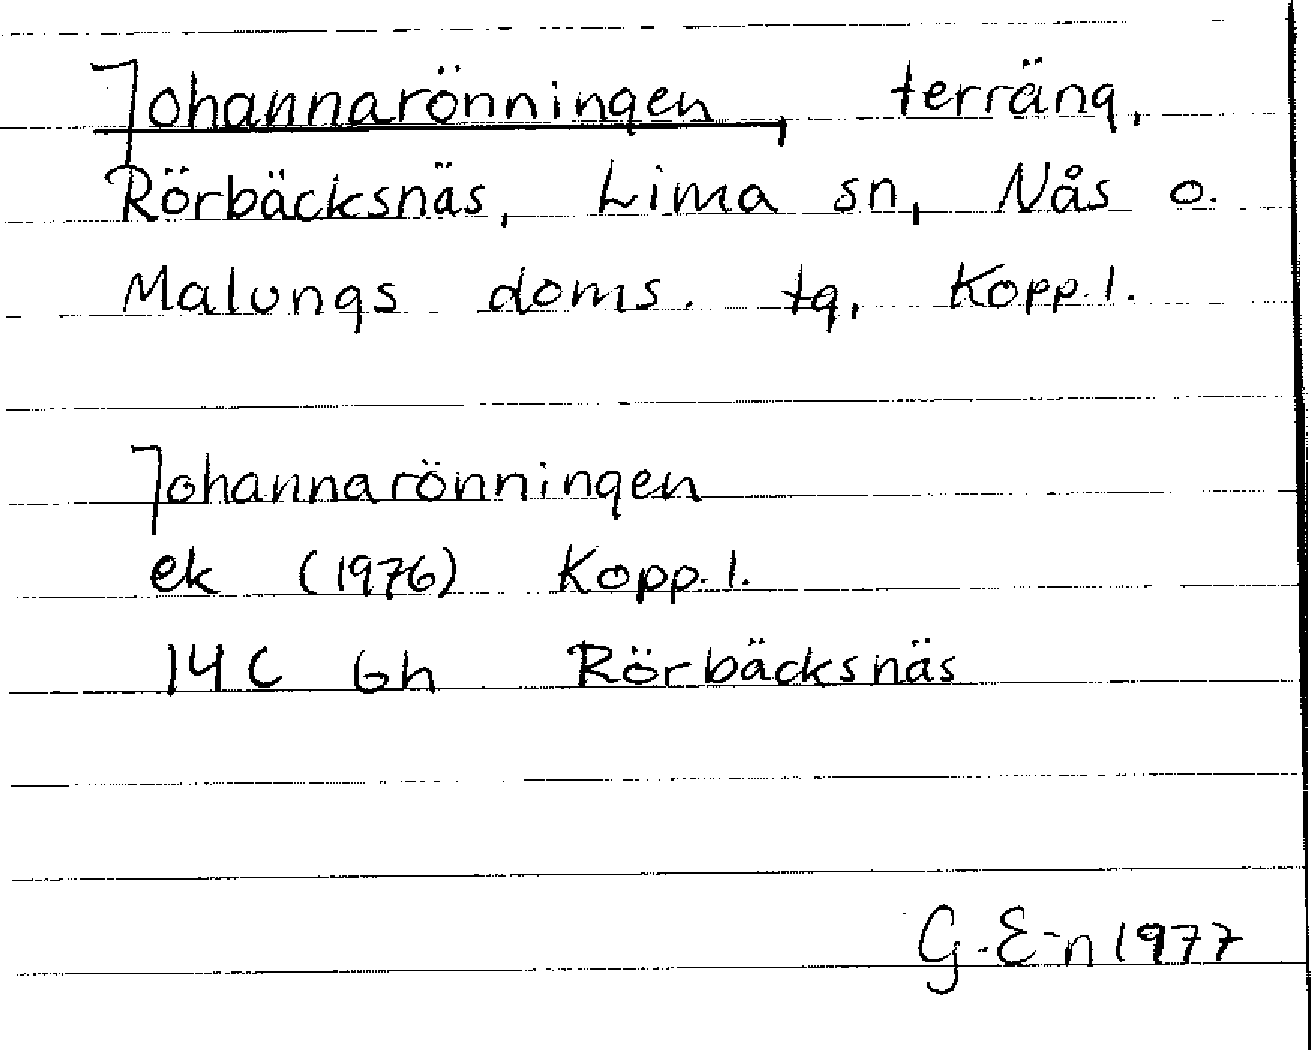 Johannarönningen, terräng,
Rörbäcksnäs, Lima sn, Nås o.
Malungs doms. tg, Kopp.l.
Johannarönningen
ek (1976) Kopp.l.
14C 6h Rörbäcksnäs
G.E-n 1977